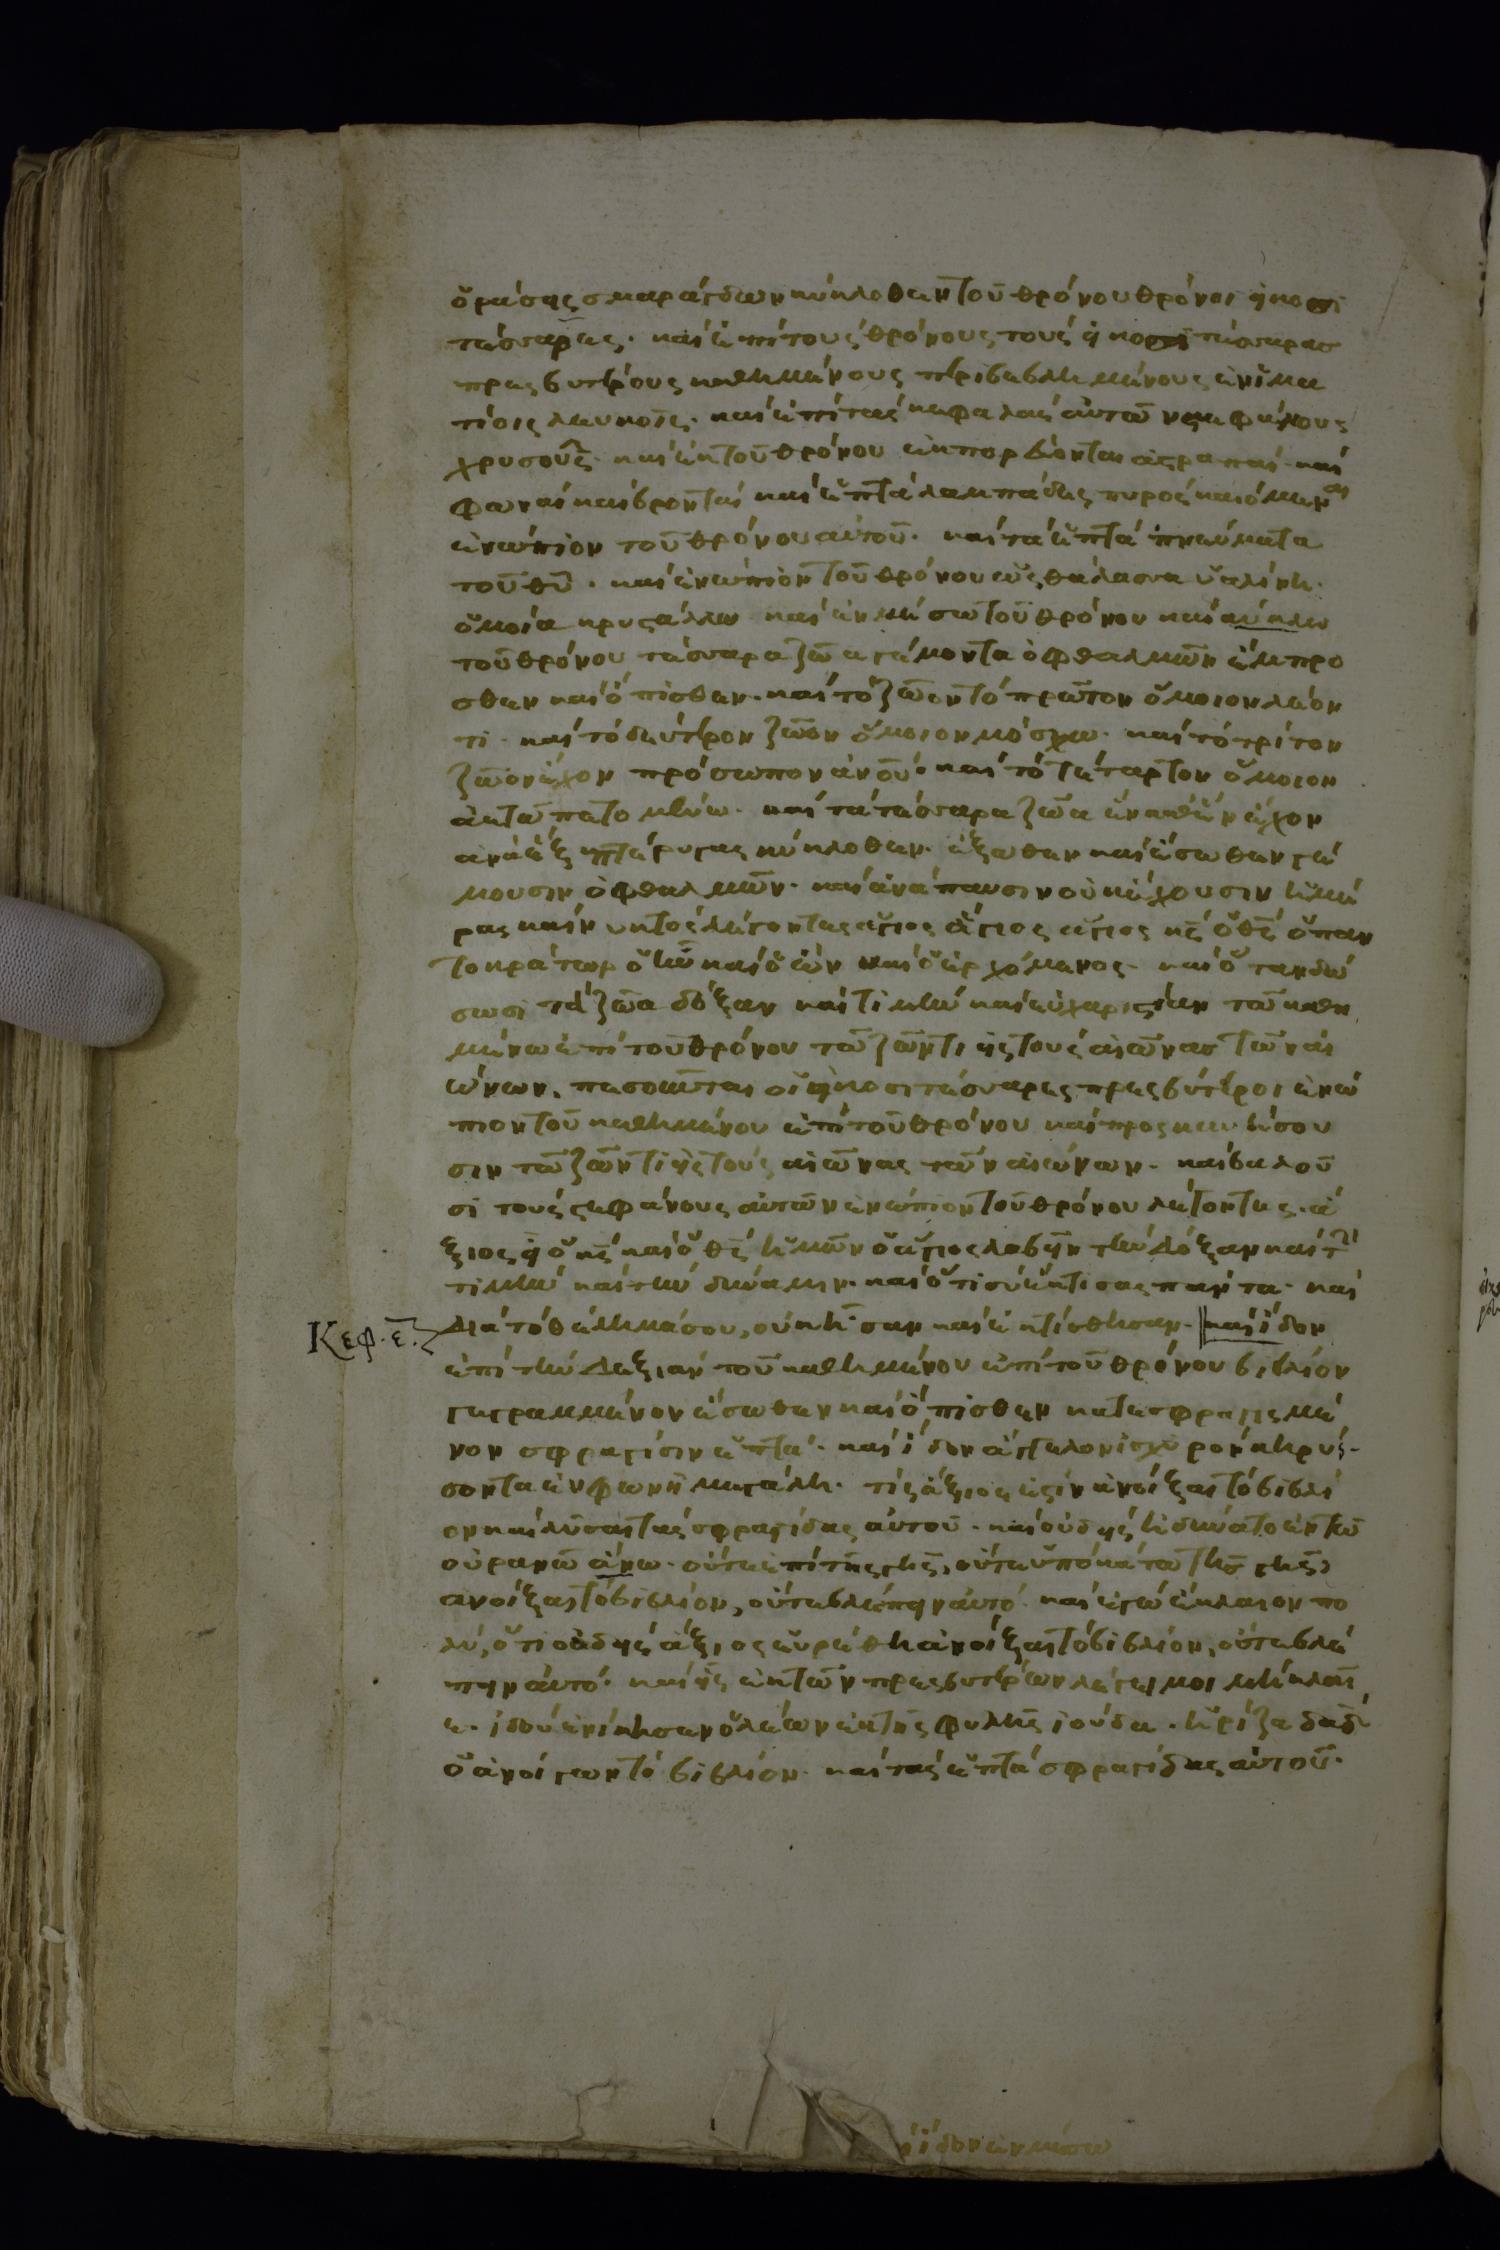 ὅρασης σμαράγδων κύκλοθεν τοῦ θρόνου θρόνοι ἤκοσι
τέσσαρες. καὶ ἐπὶ τοὺς θρόνους τοὺς ἤκοσι τέσσαρας
πρεσβυτέρους καθημένους περιβεβλημένους ἐν ἱμα
τίοις λευκοῖς. καὶ ἐπὶ τὰς κεφαλὰς αὐτῶν στεφάνους
χρυσοῦς. καὶ ἐκ τοῦ θρόνου ἐκπορεύονται ἀστραπαί. καὶ
φωναὶ καὶ βρονταὶ καὶ ἑπτὰ λαμπάδες πυρὸς καιόμεναι
ἐνώπιον τοῦ θρόνου αὐτοῦ. καὶ τὰ ἑπτὰ πνεύματα
τοῦ θῦ. καὶ ἐνώπιον τοῦ θρόνου ὡς θάλασσα ὑαλίνη.
ὁμοία κρυστάλλω καὶ ἐν μέσω τοῦ θρόνου καὶ κύκλω
τοῦ θρόνου τέσσαρα ζῶα γέμοντα ὀφθαλμῶν ἔμπρο
σθεν καὶ ὄπισθεν. καὶ τὸ ζῶον τὸ πρῶτον ὅμοιον λέον
τι. καὶ τὸ δεύτερον ζῶον ὅμοιον μόσχω. καὶ τὸ τρίτον
ζῶον ἔχον πρόσωπον ἀνοῦ. καὶ τὸ τέταρτον ὅμοιον
ἀετῶ πετομένω. καὶ τὰ τέσσαρα ζῶα ἓν καθ' ἓν ἔχον
ἀνὰ ἓξ πτέρυγας κύκλοθεν. ἔξωθεν καὶ ἔσωθεν γέ
μουσιν ὀφθαλμῶν. καὶ ἀνάπαυσιν οὐκ ἔχουσιν ἡμέ
ρας καὶ νυκτὸς λέγοντες ἅγιος ἅγιος ἅγιος κς ὁ θς ὁ παν
τοκράτωρ ὁ ἦν καὶ ὁ ὢν καὶ ὁ ἐρχόμενος. καὶ ὅταν δώ
σωσι τὰ ζῶα δόξαν καὶ τιμὴν καὶ εὐχαριστίαν τῶ καθη
μένω ἐπὶ τοῦ θρόνου τῶ ζῶντι ἠς τοὺς αἰῶνας τῶν αἰ
ώνων. πεσοῦνται οἱ ἤκοσι τέσσαρες πρεσβύτεροι ἐνώ
πιον τοῦ καθημένου ἐπὶ τοῦ θρόνου καὶ προσκυνήσου
σιν τῶ ζῶντι ἠς τοὺς αἰῶνας τῶν αἰώνων. καὶ βαλοῦ
σι τοὺς στεφάνους αὐτῶν ἐνώπιον τοῦ θρόνου λέγοντες. ἄ
ξιος ἦ ὁ κς καὶ ὁ θς ἡμῶν ὁ ἅγιος λαβῆν τὴν δόξαν καὶ τὴν
τιμὴν καὶ τὴν δύναμιν. καὶ ὅτι σὺ ἔκτισας πάντα. καὶ
Κεφ. ε. διὰ τὸ θέλημά σου, οὐκ ἦσαν καὶ ἐκτίσθησαν. καὶ ἴδον
ἐπὶ τὴν δεξιὰν τοῦ καθημένου ἐπὶ τοῦ θρόνου βιβλίον
γεγραμμένον ἔσωθεν καὶ ὄπισθεν κατεσφραγισμέ
νον σφραγίσιν ἑπτά. καὶ ἴδον ἄγγελον ἰσχυρὸν κηρύσ
σοντα ἐν φωνῆ μεγάλη. τίς ἄξιος ἐστὶν ἀνοίξαι τὸ βιβλί
ον καὶ λῦσαι τὰς σφραγίδας αὐτοῦ. καὶ οὐδῆς ἠδύνατο ἐν τῶ
οὐρανῶ ἄνω. οὔτε ἐπὶ τῆς γῆς, οὔτε ὑποκάτω τῆς γῆς,
ἀνοίξαι τὸ βιβλίον, οὔτε βλέπην αὐτό. καὶ ἐγὼ ἔκλαιον πο
λύ, ὅτι οὐδῆς ἄξιος εὑρέθη ἀνοίξαι τὸ βιβλίον, οὔτε βλέ
πην αὐτό. καὶ ἧς ἐκ τῶν πρεσβυτέρων λέγει μοι μὴ κλαῖ
ε. ἰδοὺ ἐνίκησεν ὁ λέων ἐκ τῆς φυλῆς ἰούδα. ἡ ρίζα δαδ
ὁ ἀνοίγων τὸ βιβλίον. καὶ τὰς ἑπτὰ σφραγίδας αὐτοῦ.
ἴδον ἐν μέσω